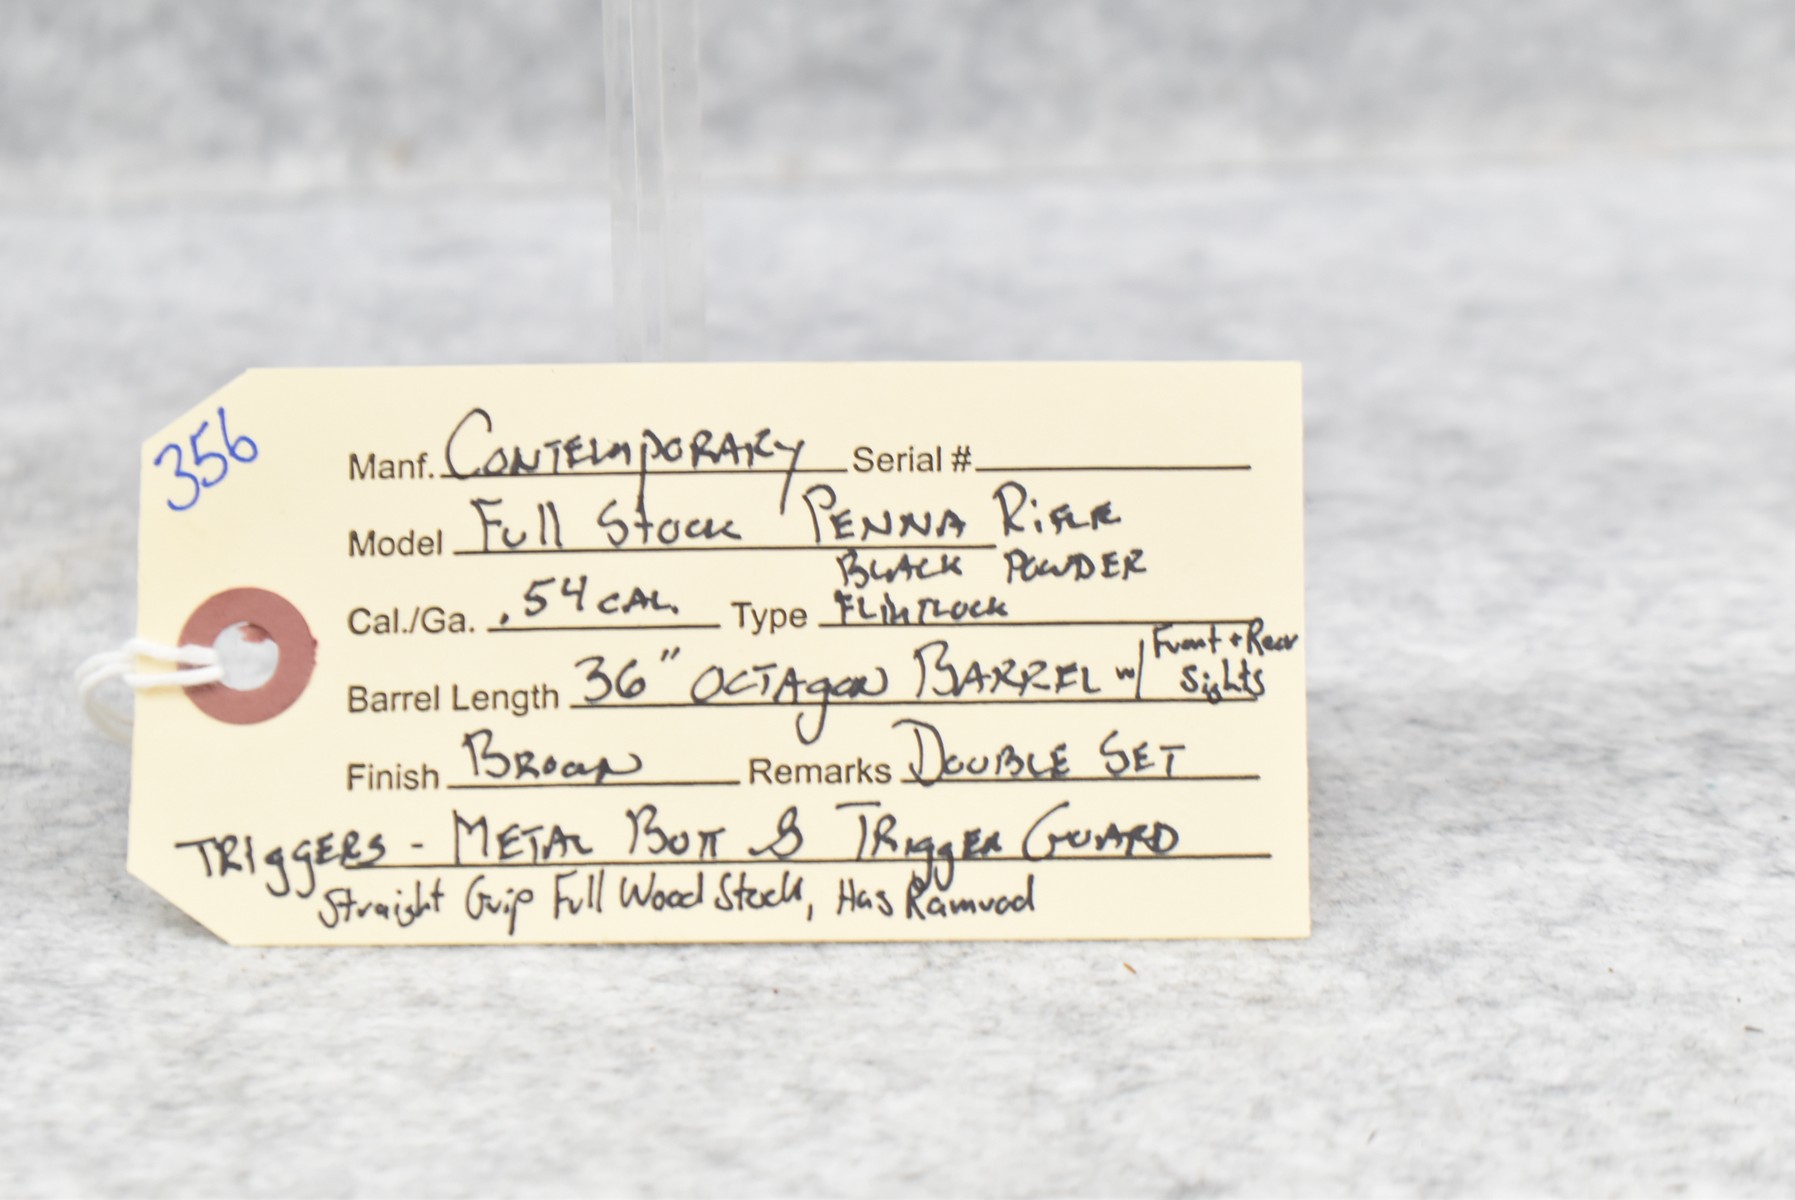 356
Manf. Contemporary Serial #
Model Full Stock Penna Rifle
Black Powder
Cal./Ga. .54 cal. Type Flintlock
Front + Rear
Barrel Length 36" Octagon Barrel w/ Sights
Finish Brown Remarks Double Set
Triggers - Metal Butt & Trigger Guard
Straight Grip Full Wood Stock, Has Ramrod